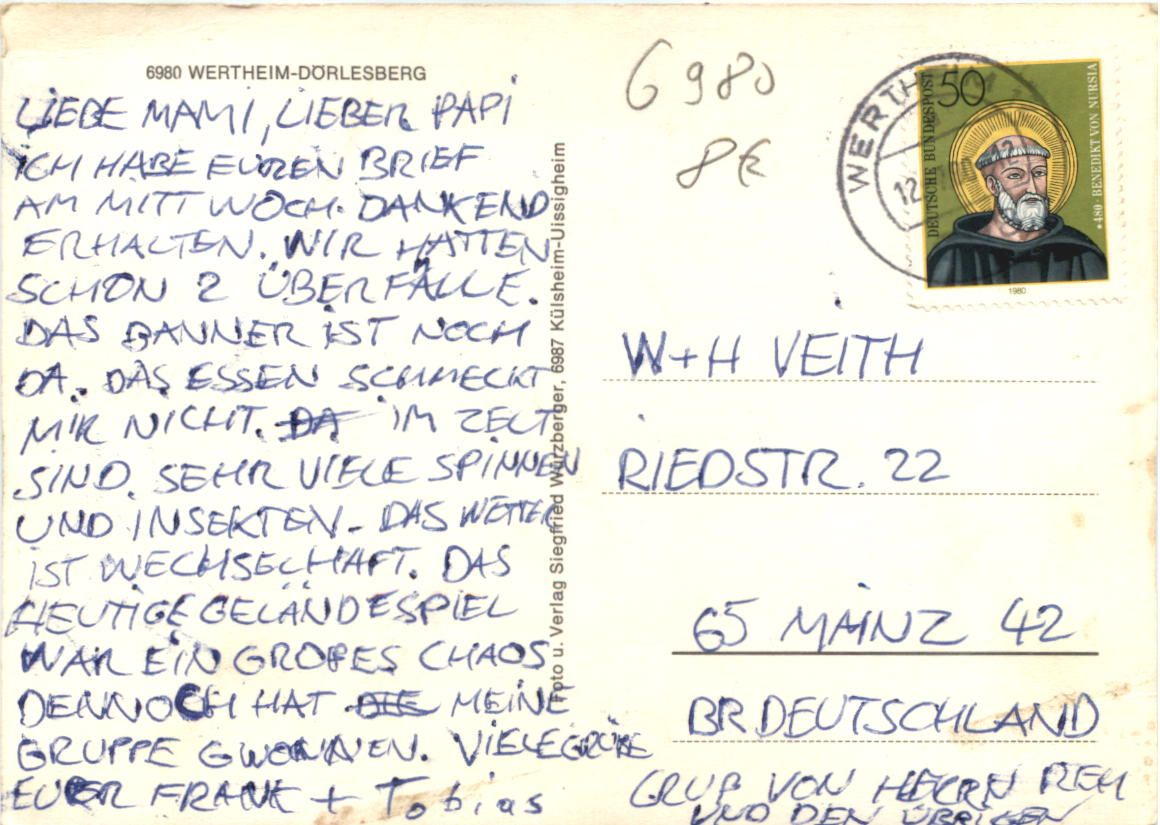 6980 WERTHEIM-DÖRLESBERG
LIEBE MAMI, LIEBER PAPI
ICH HABE EUREN BRIEF
AM MITTWOCH DANKEND
ERHALTEN. WIR HATTEN
SCHON 2 ÜBERFÄLLE.
DAS BANNER IST NOCH
DA. DAS ESSEN SCHMECKT
MIR NICHT. DA IM ZELT
SIND SEHR VIELE SPINNEN
UND INSEKTEN. DAS WETTER
IST WECHSELHAFT. DAS
HEUTIGE GELÄNDESPIEL
WAR EIN GROßES CHAOS
DENNOCH HAT DIE MEINE
GRUPPE GWONNEN. VIELE GRÜßE
EUER FRANK + Tobias
Foto u. Verlag Siegfried Würzberger, 6987 Külsheim-Uissigheim
6980
8€
WERTH
12
DEUTSCHE BUNDESPOST
50
*480 · BENEDIKT VON NURSIA
1980
W+H VEITH
RIEDSTR. 22
65 MAINZ 42
BR DEUTSCHLAND
GRUß VON HERRN
UND DEN ÜBRIGEN